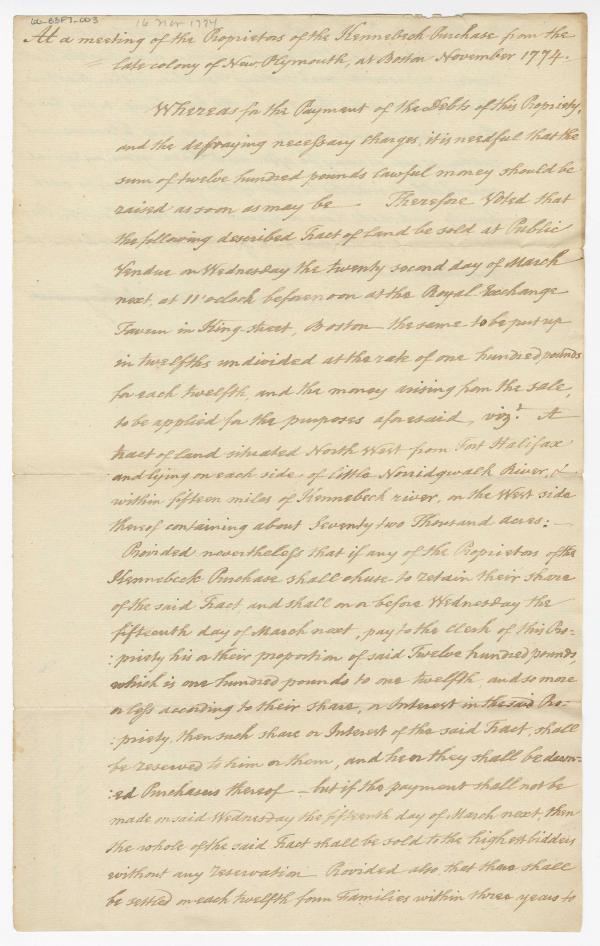 66-8357-003
16 Nov 1774
At a meeting of the Proprietors of the Kennebeck Purchase from the
late colony of New Plymouth, at Boston November 1774.
Whereas for the Payment of the Debts of this Propriety,
and the defraying necessary charges, it is needful that the
sum of twelve hundred pounds lawful money should be
raised as soon as may be Therefore Voted that
the following described Tract of Land be sold at Public
Vendue on Wednesday the twenty second day of March
next, at 11 o'clock beforenoon at the Royal Exchange
Tavern in King street, Boston the same to be put up
in twelfths undivided at the rate of one hundred pounds
for each twelfth, and the money arising from the sale,
to be applied for the purposes aforesaid, vizt. A
tract of Land situated North West from Fort Halifax
and lying on each side of little Norridgwalk River, &
within fifteen miles of Kennebeck river, on the West side
thereof containing about Seventy two Thousand acres: —
Provided nevertheless that if any of the Proprietors of the
Kennebeck Purchase shall chuse to retain their share
of the said Tract and shall on or before Wednesday the
fifteenth day of March next, pay to the Clerk of this Pro-
:priety his or their proportion of said Twelve hundred pounds,
which is one hundred pounds to one twelfth, and so more
or less according to their share, or Interest in the said Pro-
:priety, then such share or Interest of the said Tract, shall
be reserved to him or them, and he or they shall be deem-
:ed Purchasers thereof — but if the payment shall not be
made on said Wednesday the fifteenth day of March next, then
the whole of the said Tract shall be sold to the highest bidders
without any reservation Provided also that there shall
be settled on each twelfth four Families within three years to